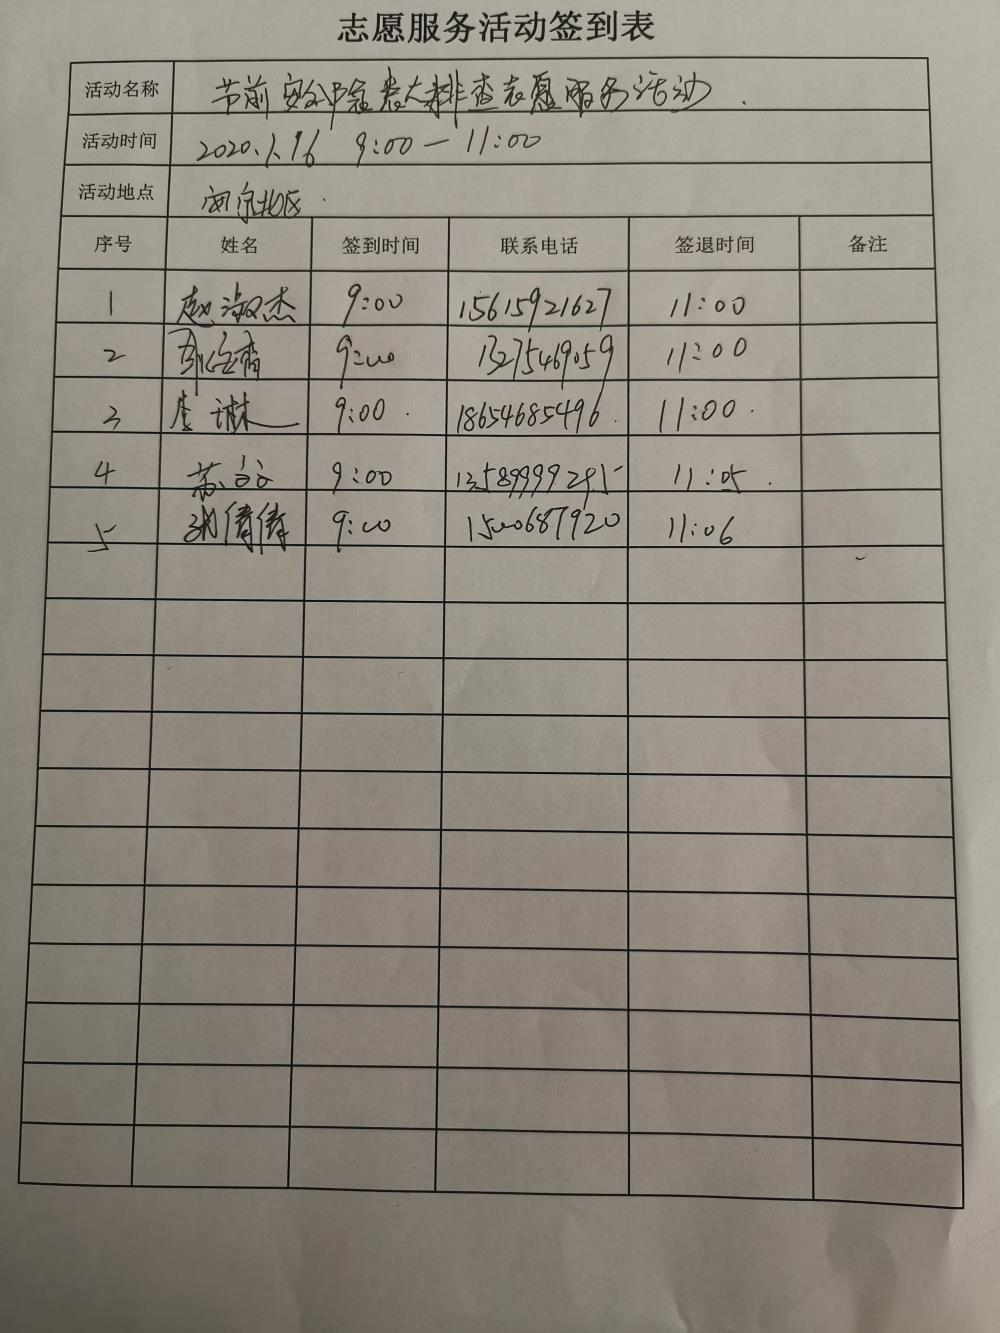 志愿服务活动签到表
活动名称 节前安全隐患大排查志愿服务活动.
活动时间 2020.1.16 9:00—11:00
活动地点 北区.
序号 姓名 签到时间 联系电话 签退时间 备注
1 赵淑杰 9:00 15615921627 11:00
2 9:00 13275469059 11:00
3 李琳 9:00. 18654685496. 11:00.
4 苏 9:00 13589999295 11:05.
5 张倩倩 9:00 1500687920 11:06